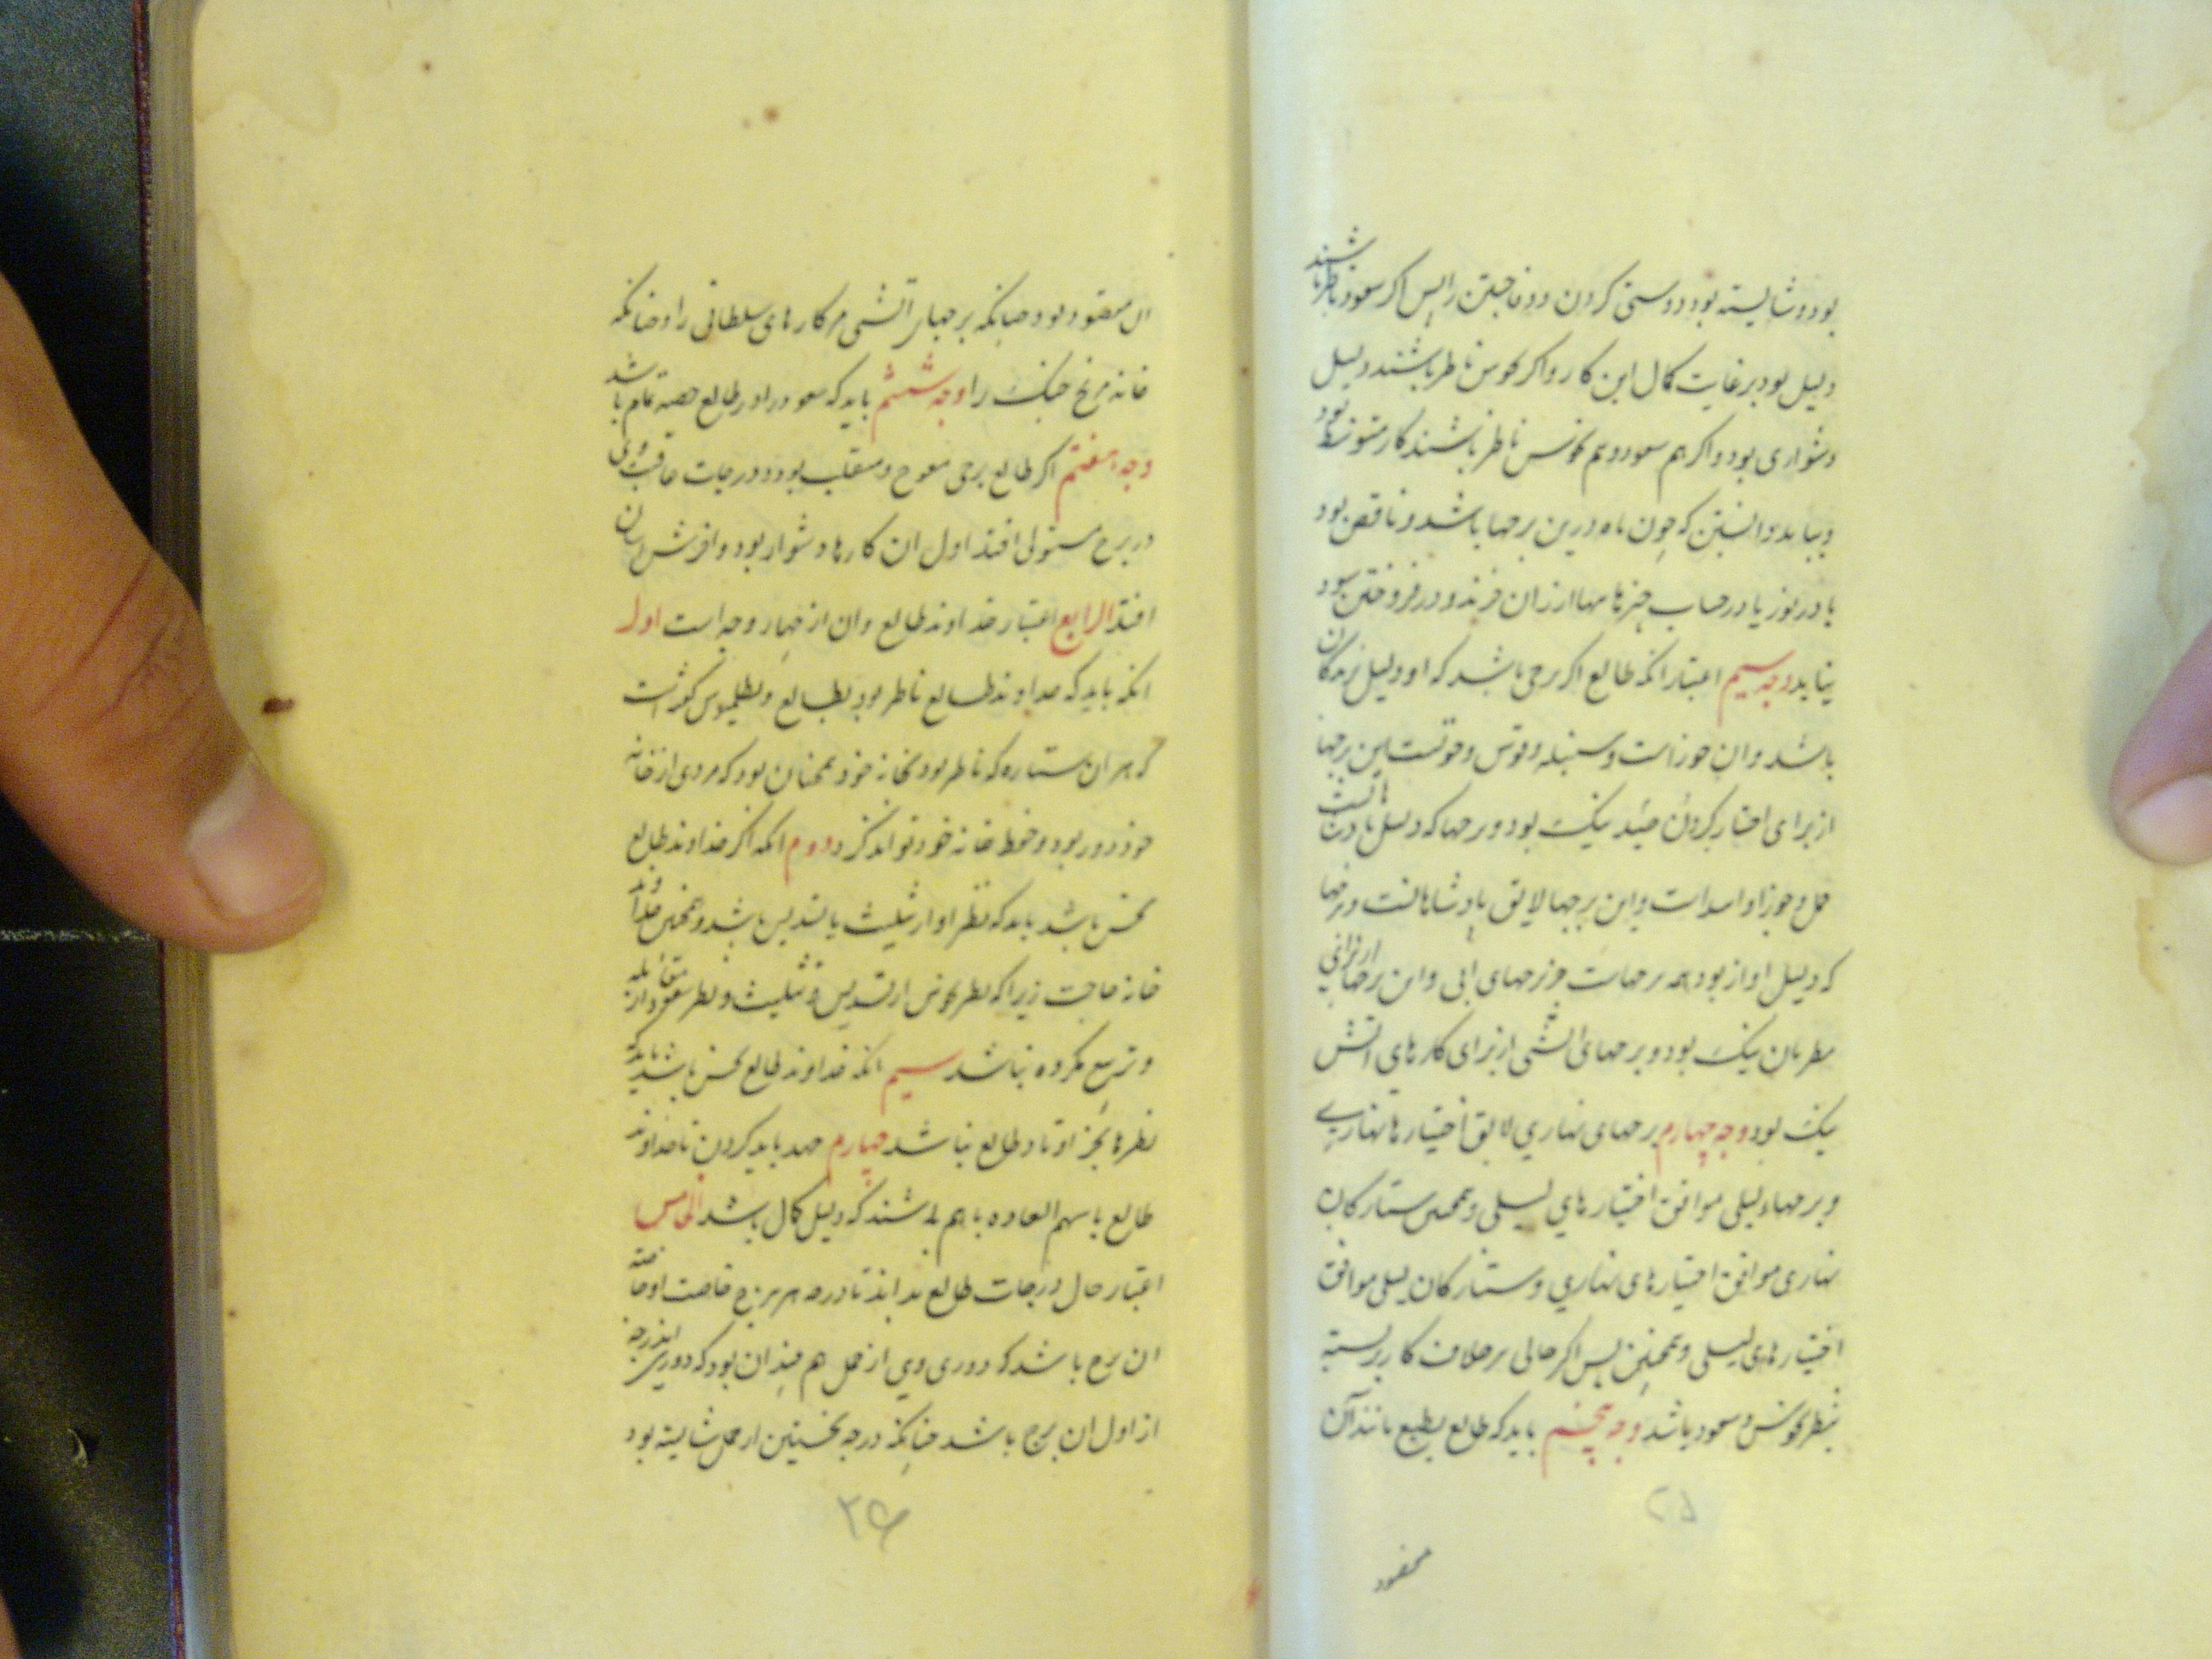 بود و شایسته بود دوستی کردن و وفا جستن را پس اکر سعود ناظر باشند
دلیل بود بر غایت کمال این کار و اکر نحوس ناظر باشند دلیل
دشواری بود و اکر هم سعود و هم نحوس ناظر باشند کار متوسط بود
و بباید دانستن که چون ماه درین برجها باشد و ناقص بود
یا در نور یا در حساب چیزها بها ارزان خرند و در فروختن سود
نیاید وجه سیم اعتبار انکه طالع اکر برجی باشد که او دلیل
باشد و ان جوزاست و سنبله و قوس و حوتست این برجها
از برای اختیار کردن صید نیک بود و برجها که دلیل
حمل و جوزا و اسد است و این برجها لایق پادشاهانست و برجها
که دلیل اواز بود همه برجهاست جز برجهای ابی و این برجها از برای
مطربان نیک بود و برجهای اتشی از برای کارهای اتش
نیک بود وجه چهارم برجهای نهاری لایق اختیارها نهاری
و برجهاء لیلی موافق اختیارهای لیلی و همچنین ستارکان
نهاری موافق اختیارهای نهاری و ستارکان لیلی موافق
اختیارهای لیلی و همچنین پس اکر حالی بر خلاف کار
بنظر نحوس و سعود باشد وجه پنجم باید که طالع بطبع مانند آن
۲۵
مقصود
ان مقصود بود چنانکه برجهاء اتشی مر کارهای سلطانی را و چنانکه
خانه مریخ جنک را وجه ششم باید که سعود را در طالع حصه تمام باشد
وجه هفتم اکر طالع برجی معوج و منقلب بود و درجات عاقبت وی
در برج مستوی افتد اول ان کارها دشوار بود و اخرش اسان
افتد الرابع اعتبار خداوند طالع و ان از چهار وجه است اول
انکه باید که خداوند طالع ناظر بود بطالع و بطلمیوس کفته است
که هر ان ستاره که ناظر بود بخانه خود همچنان بود که مردی از خانه
خود دور بود و حفظ خانه خود نتواند کرد دوم انکه اکر خداوند طالع
نحس باشد باید که نظر او از تثلیث یا تسدیس باشد و همچنین خداوند
خانه حاجت زیرا که نظر نحوس از تسدیس و تثلیث و نظر سعود از مقابله
و تربیع مکروه نباشد سیم انکه خداوند طالع نحس باشد باید که
نظرها بجز اوتاد طالع نباشد چهارم جهد باید کردن تا خداوند
طالع با سهم السعاده باهم باشند که دلیل کمال باشد الخامس
اعتبار حال درجات طالع بدانند تا درجه هر برج خاصت
ان برج باشد که دوری وی از حمل هم چندان بود که دوری این درجه
از اول ان برج باشد چنانکه درجه نخستین از حمل شایسته بود
۲۶